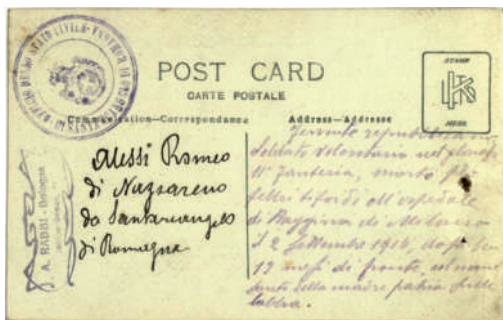 POST CARD
CARTE POSTALE
Communication—Correspondance
Address—Adresse
STAMP
HERE
A. RABBI - Bologna
Alessi Romeo
di Nazzareno
da Santarcangelo
di Romagna
Fervente repubblicano
soldato volontario nel glorioso
11° Fanteria, morto per
febbri tifoidi all'ospedale
di di
il 2 settembre 1916, dopo ben
19 mesi di fronte, col nome
della madre patria sulle
labbra.